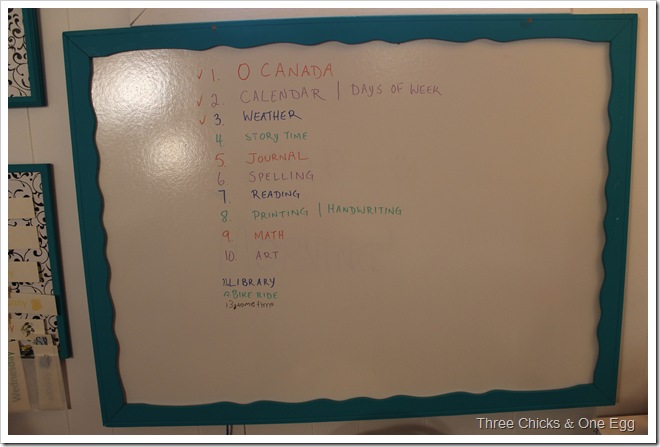 ✓ 1. O CANADA
✓ 2. CALENDAR | DAYS OF WEEK
✓ 3. WEATHER
4. STORY TIME
5. JOURNAL
6. SPELLING
7. READING
8. PRINTING | HANDWRITING
9. MATH
10. ART
11. LIBRARY
BIKE RIDE
13.
Wednesday
Three Chicks & One Egg